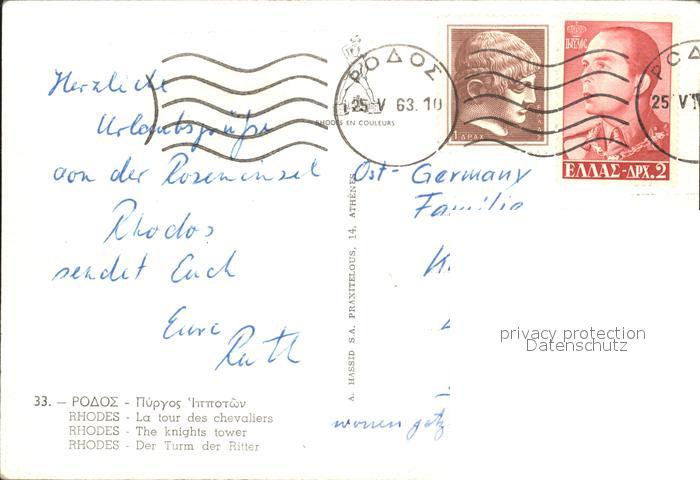 Herzliche
Urlaubsgrüße
von der Roseninsel
Rhodos
sendet Euch
Eure
Ruth
33. — ΡΟΔΟΣ - Πύργος Ἱπποτῶν
RHODES - La tour des chevaliers
RHODES - The knights tower
RHODES - Der Turm der Ritter
RHODES EN COULEURS
A. HASSID S.A. PRAXITELOUS, 14, ATHÈNES
ΡΟΔΟΣ
25 V 63.10
1 ΔΡΑΧ
ΠΑΥΛΟΣ
ΕΛΛΑΣ-ΔΡΧ.2
ΡΟΔ
25 V
Ost-Germany
Familie
K
privacy protection
Datenschutz